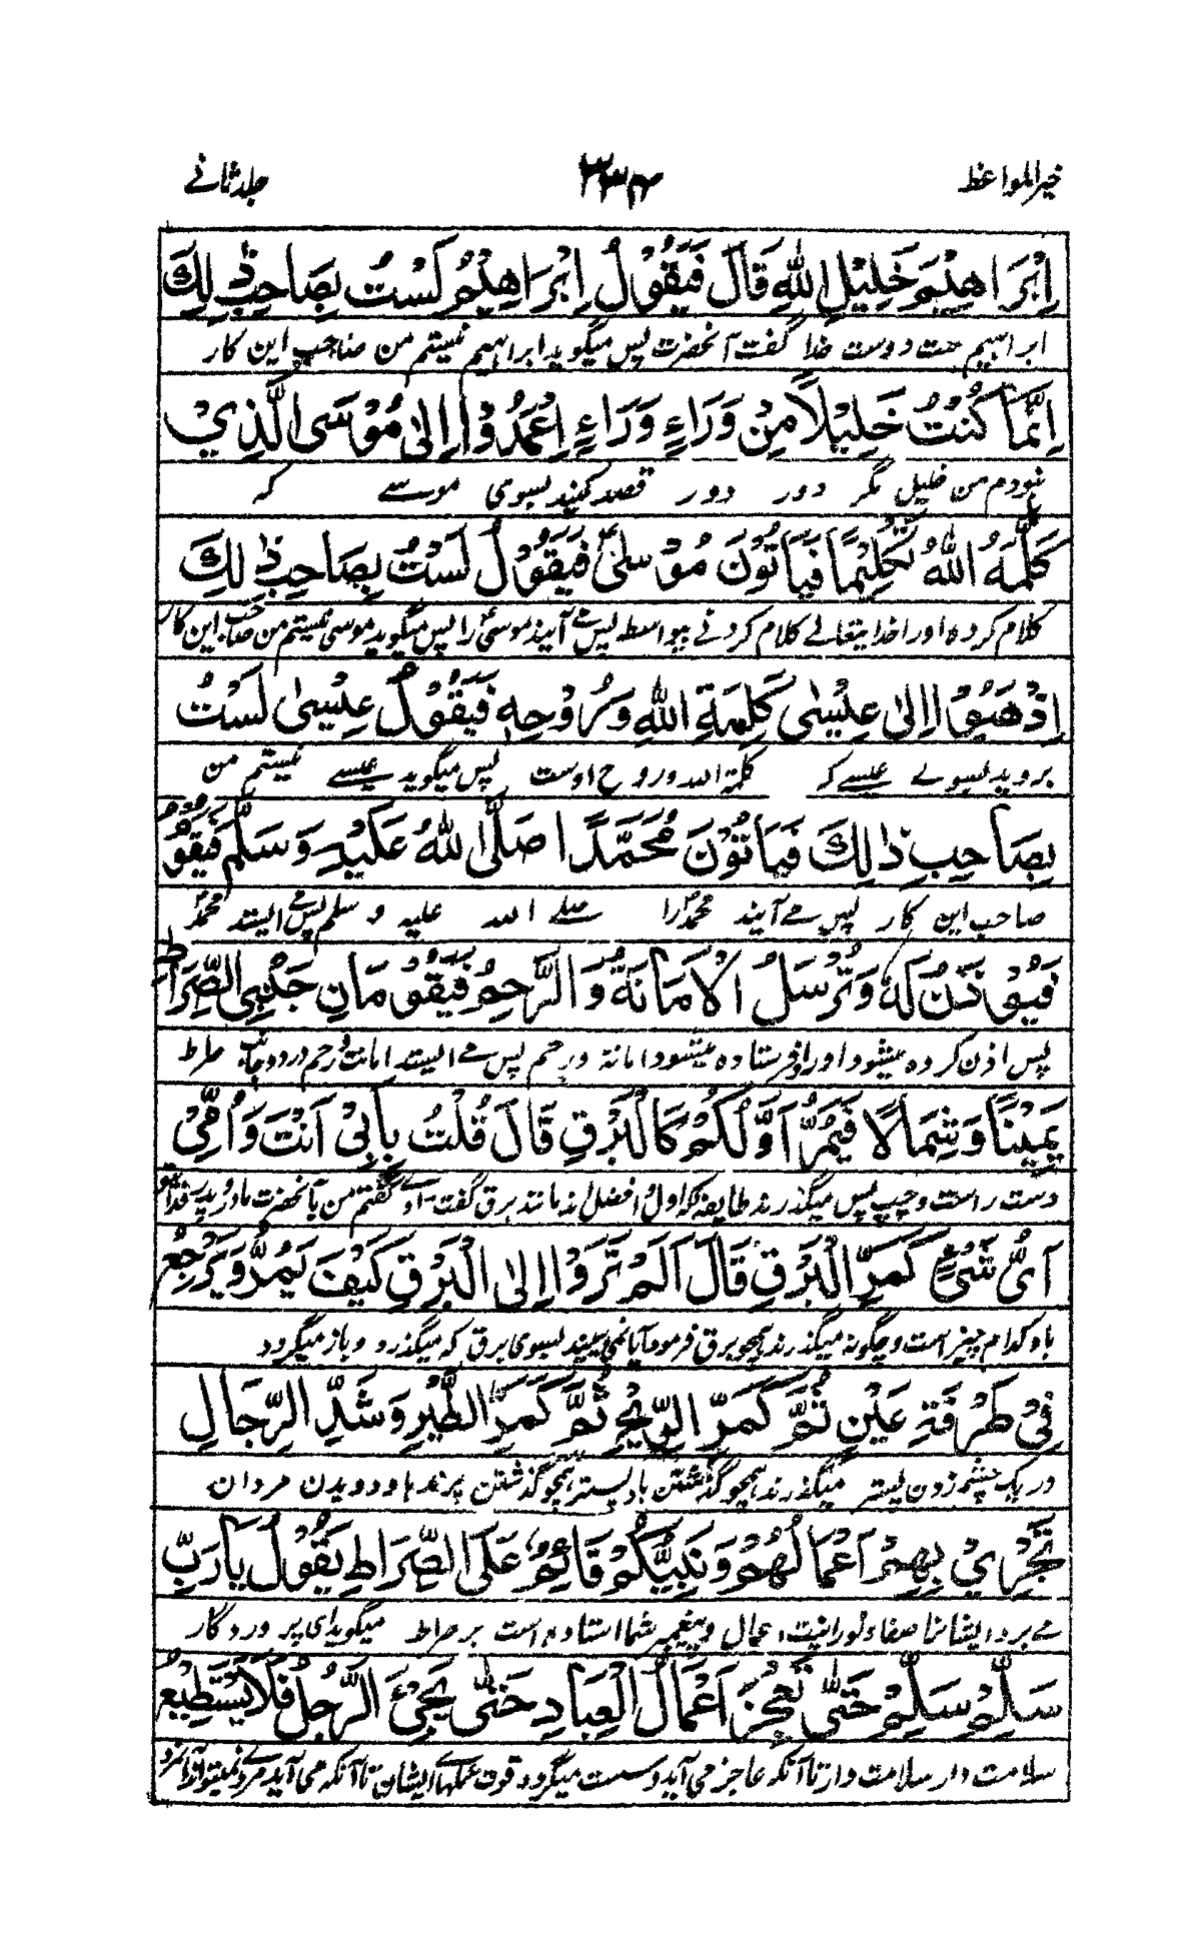 خیر المواعظ ۳۳۴ جلد ثانے
اِبْرَاهِيْمَ خَلِيْلِ اللّٰهِ قَالَ فَيَقُوْلُ اِبْرَاهِيْمُ لَسْتُ بِصَاحِبِ ذٰلِكَ
ابراہیم دوست خدا گفت آنحضرت پس میگوید ابراہیم نیستم من صاحب این کار
اِنَّمَا كُنْتُ خَلِيْلًا مِنْ وَرَاءِ وَرَاءِ اِعْمَدُوْا اِلٰى مُوْسَى الَّذِيْ
نبودم من خلیل مگر دور دور قصد کنید بسوی موسے کہ
كَلَّمَهُ اللّٰهُ تَكْلِيْمًا فَيَأْتُوْنَ مُوْسٰى فَيَقُوْلُ لَسْتُ بِصَاحِبِ ذٰلِكَ
کلام کردہ اورا خدایتعالے کلام کردنے بیواسطہ پس مے آیند موسیٰ را پس میگوید موسی نیستم من صاحب این کار
اِذْهَبُوْا اِلٰى عِيْسٰى كَلِمَةِ اللّٰهِ وَرُوْحِهٖ فَيَقُوْلُ عِيْسٰى لَسْتُ
بروید بسوے عیسے کہ کلمۃ اللہ و روح اوست پس میگوید عیسے نیستم من
بِصَاحِبِ ذٰلِكَ فَيَأْتُوْنَ مُحَمَّدًا صَلَّى اللّٰهُ عَلَيْهِ وَسَلَّمَ فَيَقُوْمُ
صاحب این کار پس مے آیند محمد را صلے اللہ علیہ و سلم پس مے ایستد محمد
فَيُؤْذَنُ لَهٗ وَتُرْسَلُ الْاَمَانَةُ وَالرَّحِمُ فَيَقُوْمَانِ جَنْبَتَيِ الصِّرَاطِ
پس اذن کردہ میشود اورا و فرستادہ میشود امانۃ و رحم پس مے ایستد امانت و رحم در دو جانب صراط
يَمِيْنًا وَشِمَالًا فَيَمُرُّ اَوَّلُكُمْ كَالْبَرْقِ قَالَ قُلْتُ بِاَبِيْ اَنْتَ وَاُمِّيْ
دست راست و چپ پس میگذرند طایفہ کہ اول و افضل اند مانند برق گفت گفتم من بآنحضرت مادر و پدر فدا
اَيُّ شَيْءٍ كَمَرِّ الْبَرْقِ قَالَ اَلَمْ تَرَوْا اِلٰى الْبَرْقِ كَيْفَ يَمُرُّ وَيَرْجِعُ
باد کدام چیز است و چگونہ میگذرند ہمچو برق فرمود آیا نمی بینید بسوی برق کہ میگذرد و باز میگردد
فِيْ طَرْفَةِ عَيْنٍ ثُمَّ كَمَرِّ الرِّيْحِ ثُمَّ كَمَرِّ الطَّيْرِ وَشَدِّ الرِّجَالِ
در یک چشم زدن میگذرند ہمچو گذشتن باد پستر ہمچو گذشتن پرندہا و دویدن مردان
تَجْرِيْ بِهِمْ اَعْمَالُهُمْ وَنَبِيُّكُمْ قَائِمٌ عَلَى الصِّرَاطِ يَقُوْلُ يَا رَبِّ
مے برد ایشانرا صفا و نورانیت اعمال و پیغمبر شما استادہ است بر صراط میگوید ای پروردگار
سَلِّمْ سَلِّمْ حَتّٰى تَعْجِزَ اَعْمَالُ الْعِبَادِ حَتّٰى يَجِيْءَ الرَّجُلُ فَلَا يَسْتَطِيْعُ
سلامت دار سلامت دار تا آنکہ عاجز می آید و سست میگردد قوت عملہاے ایشان تا آنکہ می آید مردے نمیتواند